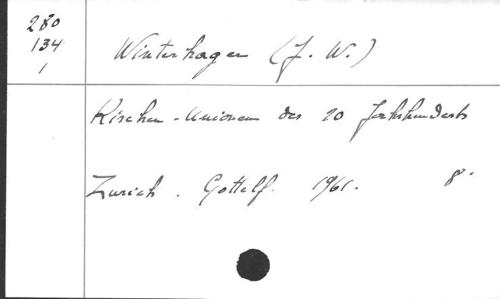 280
134
1
Winterhager (J. W.)
Kirchen-Unionen des 20 Jahrhunderts
Zurich. Gottelf. 1961. 8°